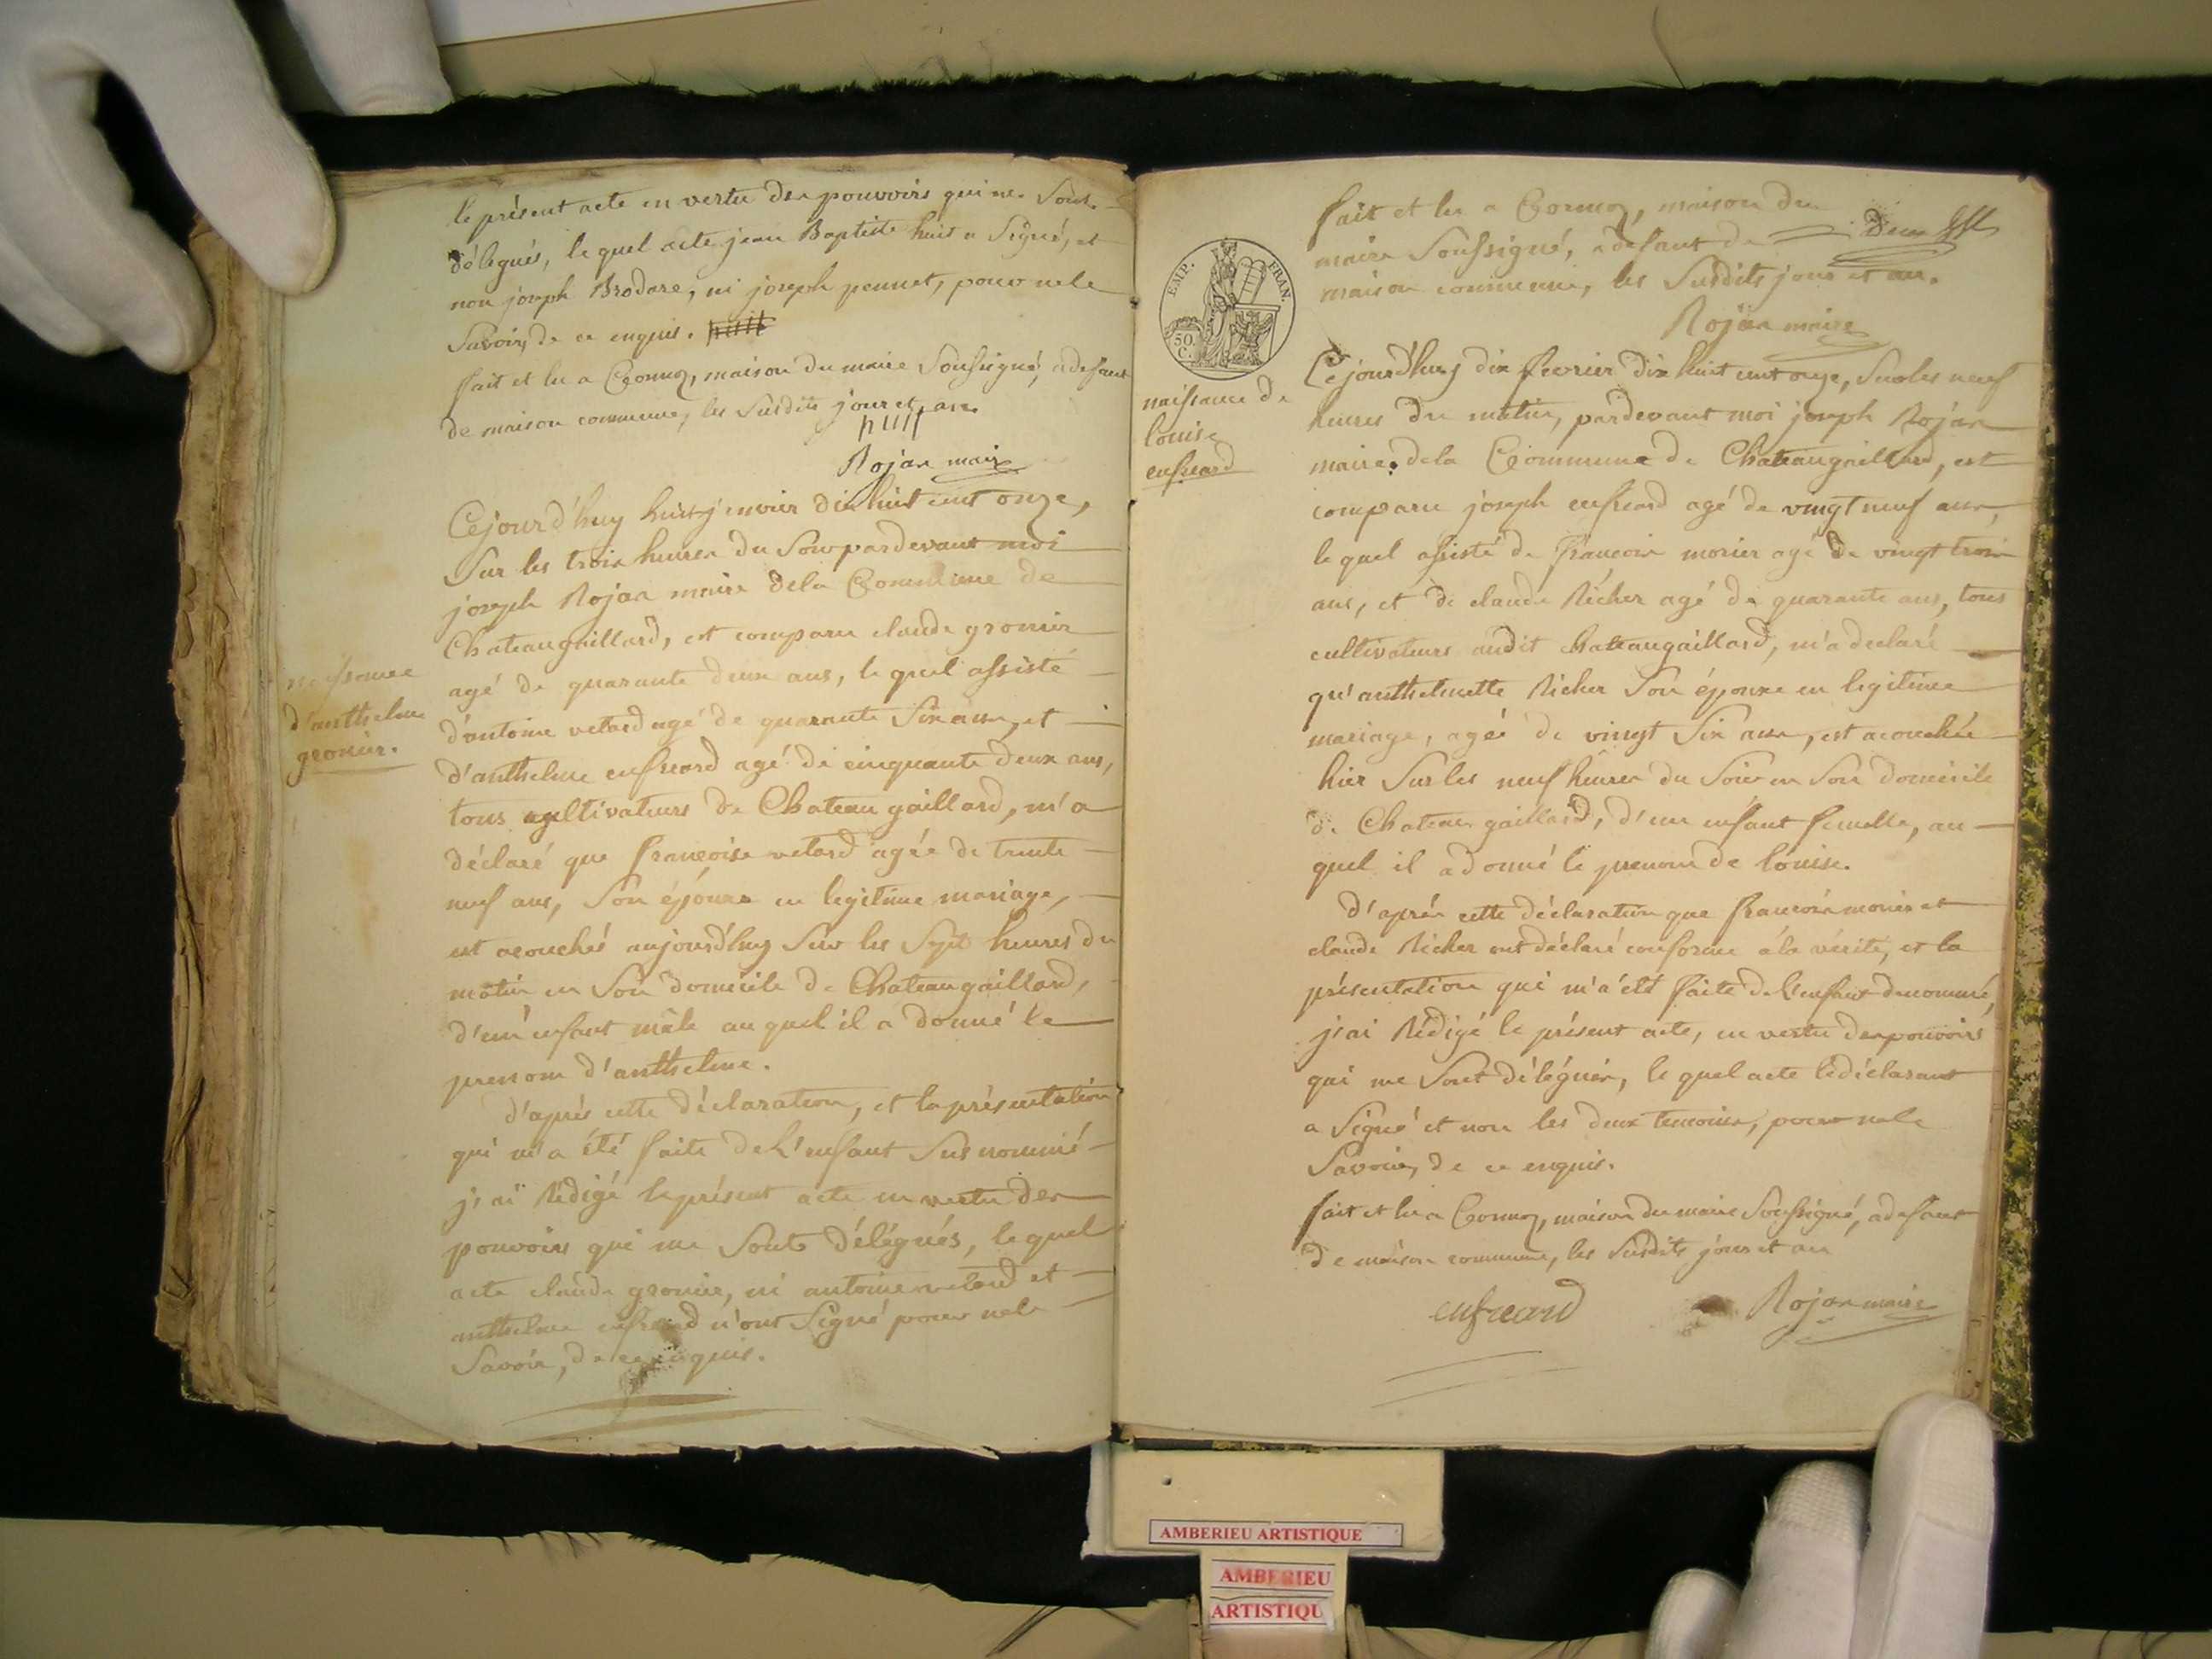 le présent acte en vertu des pouvoirs qui me sont
délégués, le quel acte jean Baptiste huit a signé, et
non joseph Brodare, ni joseph pennet, pour ne le
savoir, de ce enquis.
fait et lu a Cormoz, maison du maire soussigné, a defaut
de maison commune, les susdits jour et an.
Rojan maire
naissance
d'anthelme
gronier.
Cejourd'huy huit janvier dix huit cent onze,
sur les trois heures du soir pardevant moi
joseph Rojan maire dela Commune de
Chateaugaillard, est comparu claude gronier
agé de quarante deux ans, le quel assisté
d'antoine vetard agé de quarante six ans, et
d'anthelme enfreard agé de cinquante deux ans,
tous cultivateurs de Chateau gaillard, m'a
déclaré que françoise vetard agée de trente
neuf ans, son épouse en legitime mariage,
est acouchée aujourd'huy sur les sept heures du
matin en son domicile de Chateaugaillard,
d'un enfant mâle au quel il a donné le
prenom d'anthelme.
d'après cette déclaration, et la présentation
qui m'a été faite de l'enfant sus nommé
j'ai Rédigé le présent acte en vertu des
pouvoirs qui me sont délégués, le quel
acte claude gronier, ni antoine vetard et
anthelme enfreard n'ont signé pour ne le
savoir, de ce enquis.
fait et lu a Cormoz, maison du
maire soussigné, a defaut de
maison commune, les susdits jour et an.
Rojan maire
EMP. FRAN.
50. C.
naissance de
louise
enfreard
Cejourd'huy dix fevrier dix huit cent onze, sur les neuf
heures du matin, pardevant moi joseph Rojan
maire dela Commune de Chateaugaillard, est
comparu joseph enfreard agé de vingt neuf ans,
le quel assisté de francois morier agé de vingt trois
ans, et de claude Richer agé de quarante ans, tous
cultivateurs audit chateaugaillard, m'a declaré
qu'anthelmette Richer son épouse en legitime
mariage, agée de vingt six ans, est acouchée
hier sur les neuf heures du soir en son domicile
de Chateau gaillard, d'un enfant femelle, au
quel il a donné le prenom de louise.
d'après cette déclaration que francois morier et
claude Richer ont déclaré conforme à la vérité, et la
présentation qui m'a été faite de l'enfant denommé,
j'ai Rédigé le présent acte, en vertu des pouvoirs
qui me sont délégués, le quel acte le déclarant
a signé et non les deux temoins, pour ne le
savoir, de ce enquis.
fait et lu a Cormoz, maison du maire soussigné, a defaut
de maison commune, les susdits jour et an
enfreard Rojan maire
AMBERIEU ARTISTIQUE
AMBERIEU
ARTISTIQU